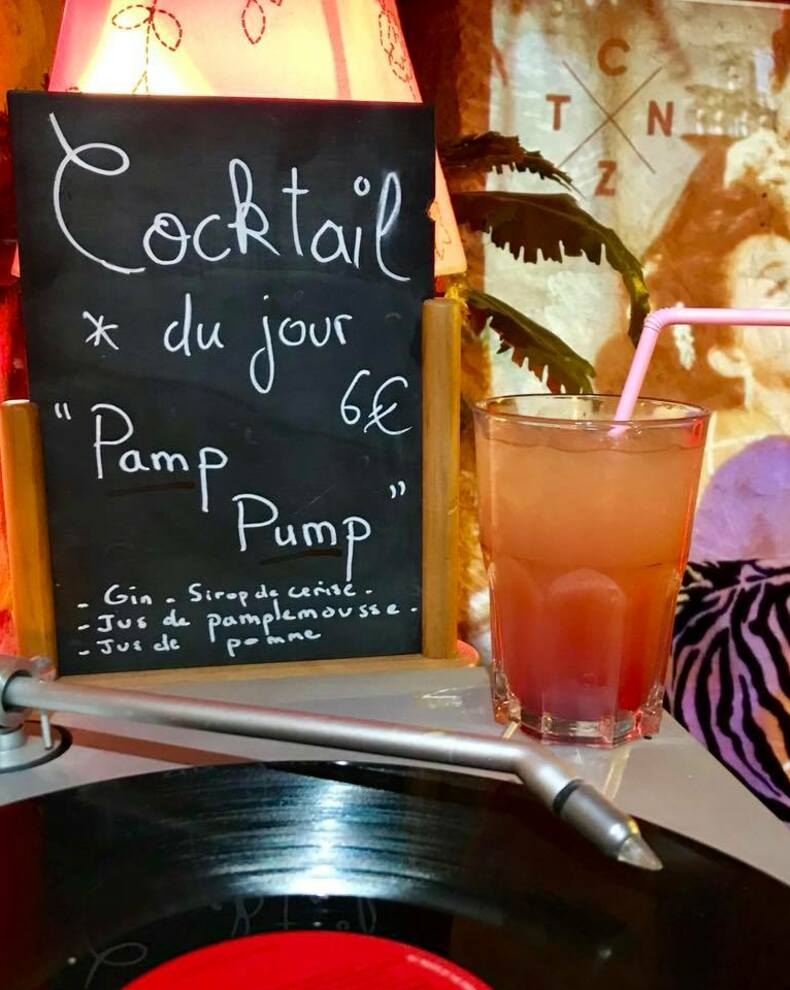 C
T N
Z
Cocktail
* du jour
6€
"Pamp
Pump"
- Gin - Sirop de cerise -
- Jus de pamplemousse -
- Jus de pomme